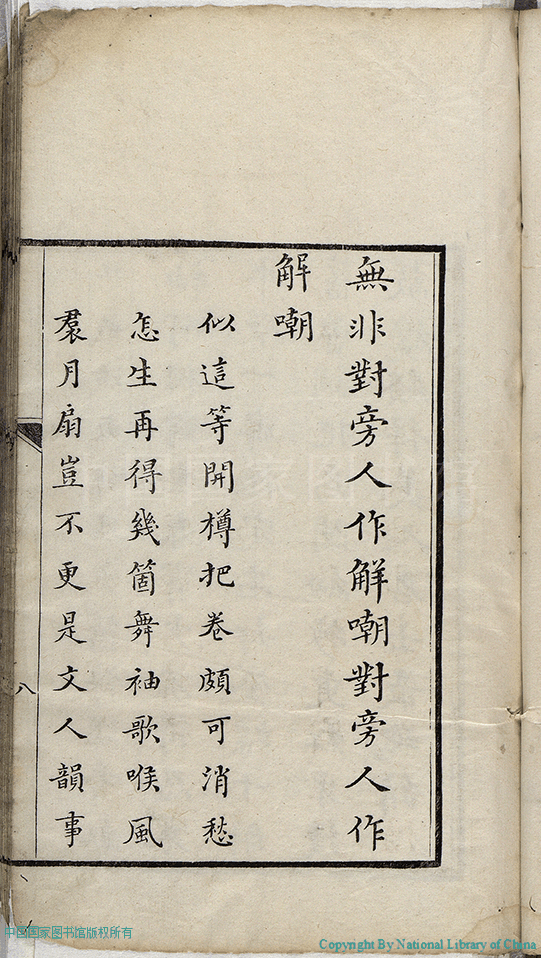 無非對旁人作解嘲對旁人作
解嘲
似這等開樽把卷頗可消愁
怎生再得幾箇舞袖歌喉風
裠月扇豈不更是文人韻事
八
中国国家图书馆版权所有
Copyright By National Library of China